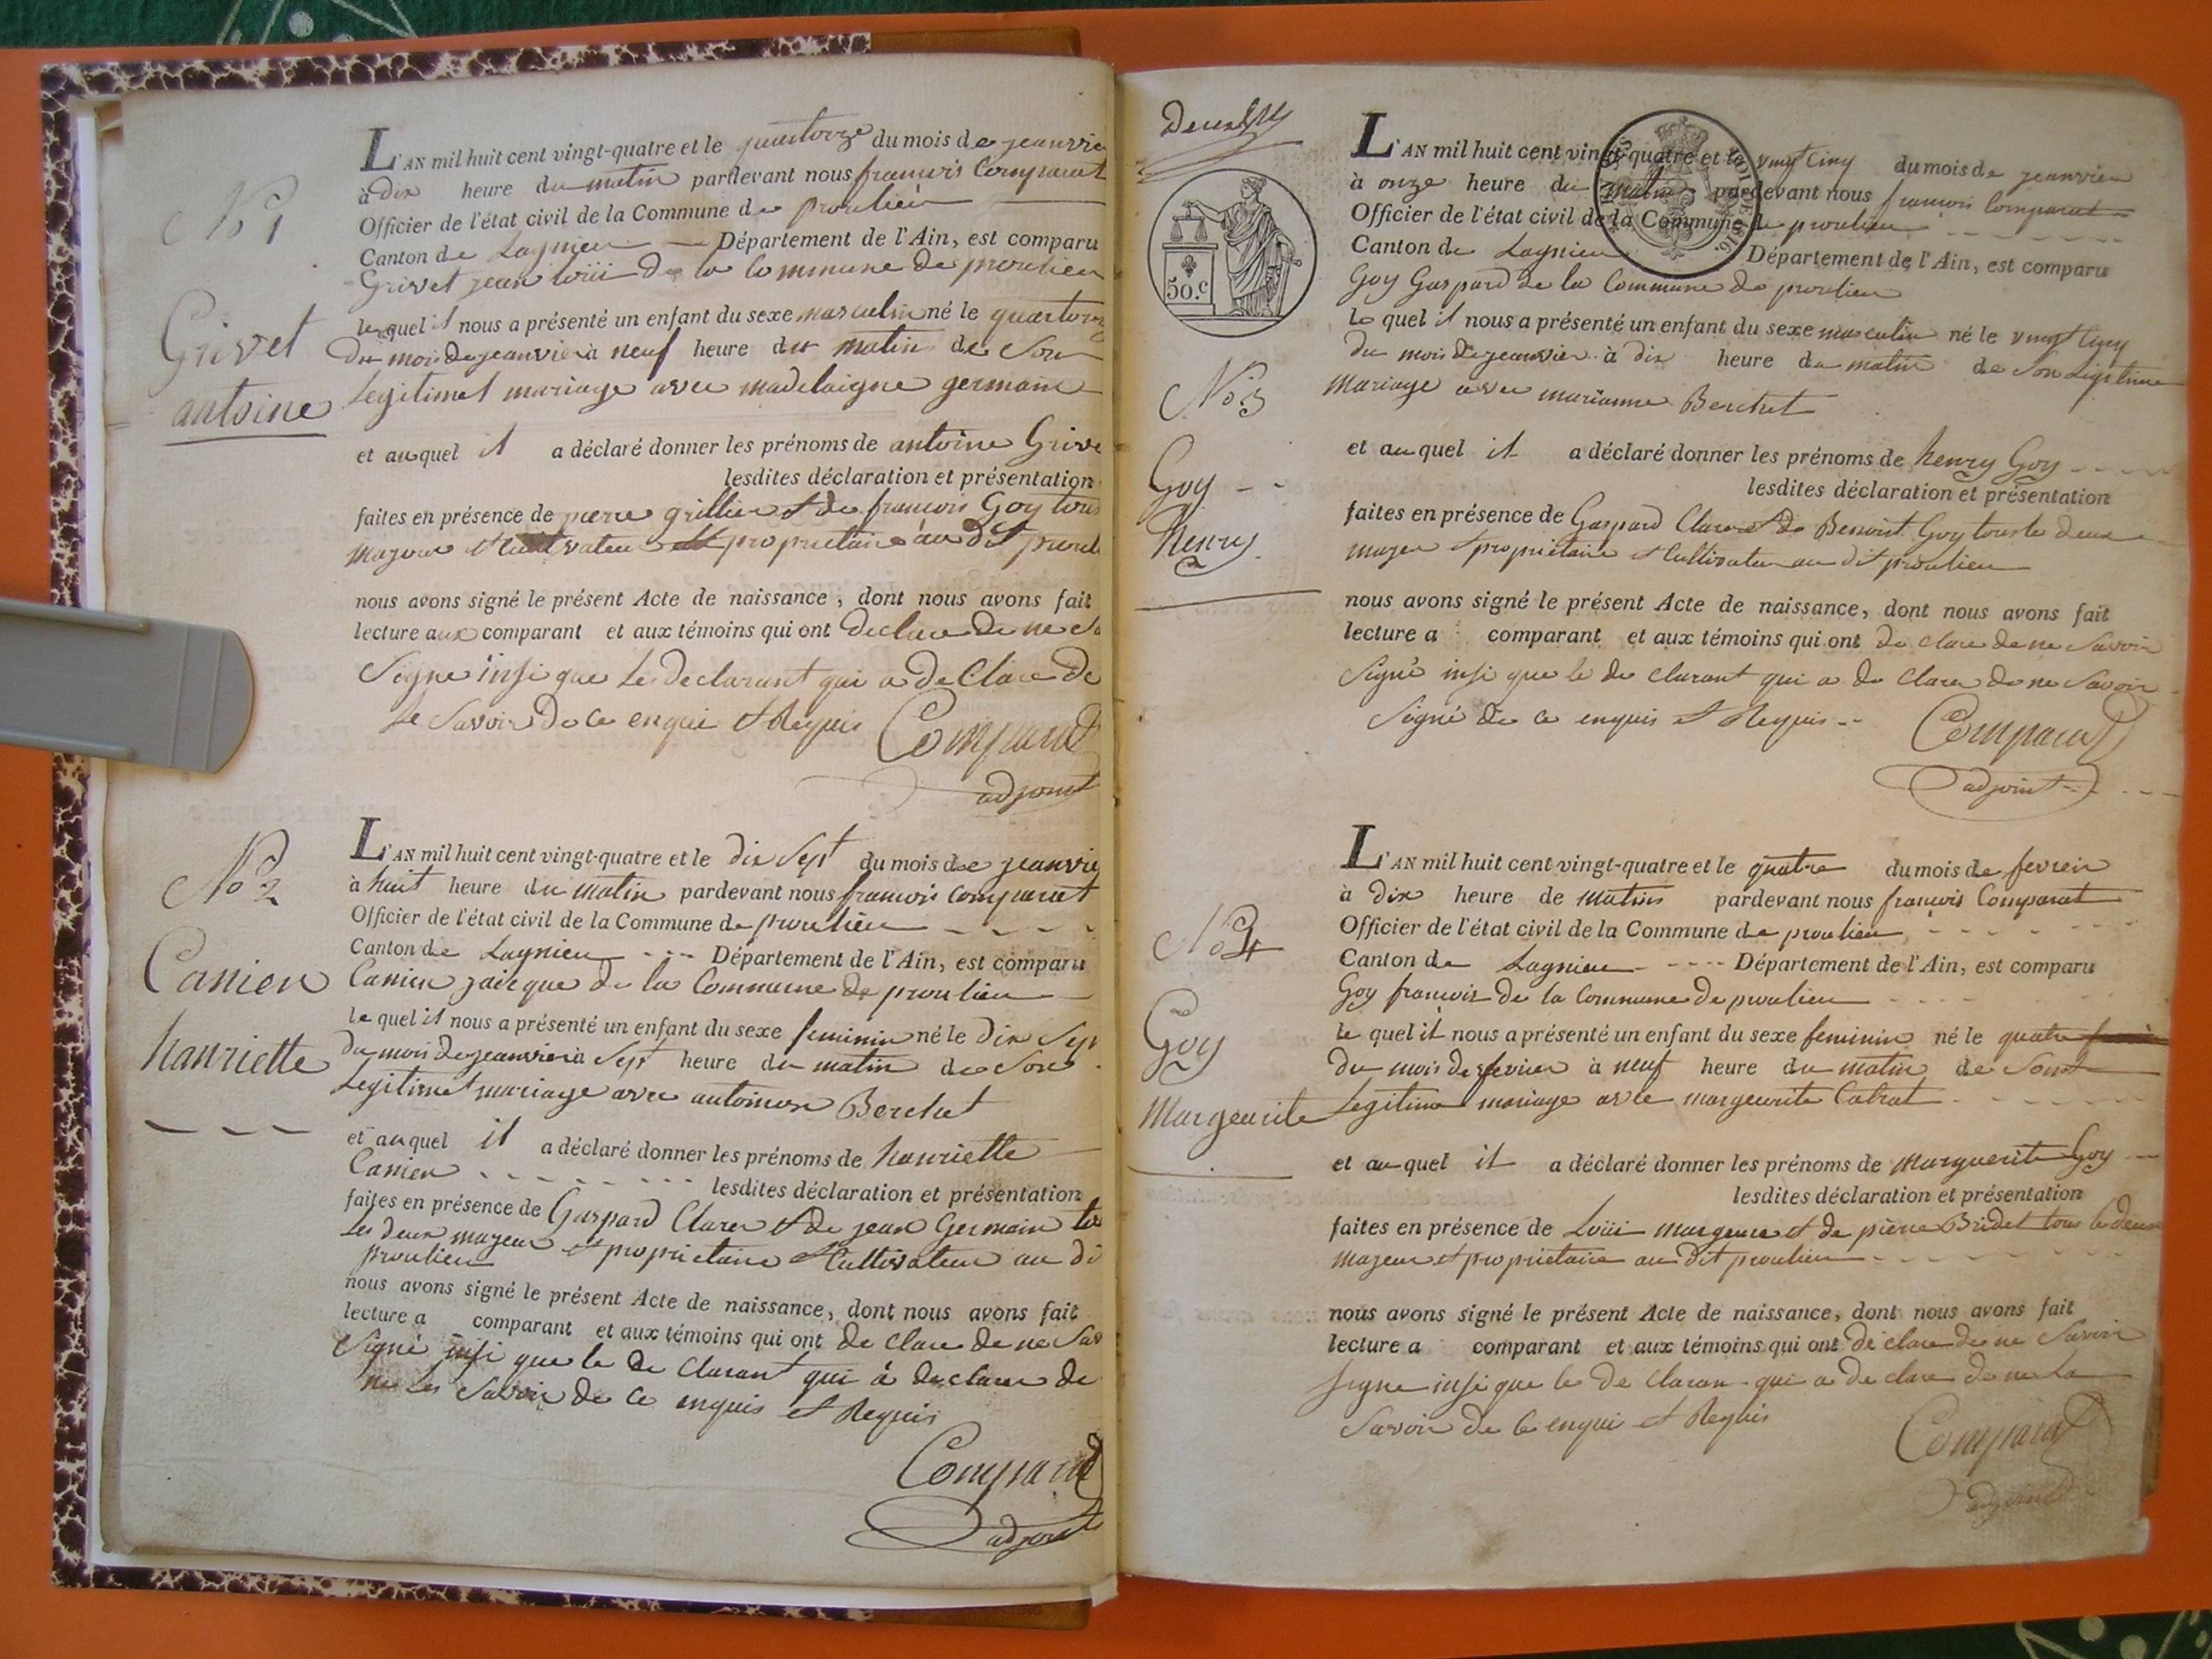 N.o 1
Grivet
antoine
L'AN mil huit cent vingt-quatre et le quatorze du mois de jeanvie
à dix heure du matin pardevant nous francois Comparat
Officier de l'état civil de la Commune de proulieu
Canton de Lagnieu Département de l'Ain, est comparu
Grivet jean loüii de la Commune de proulieu
le quel il nous a présenté un enfant du sexe masculin né le quatorz
du mois de jeanvier à neuf heure du matin de Son
Legitimet mariage avec madelaigne germain
et au quel il a déclaré donner les prénoms de antoine Grive
lesdites déclaration et présentation
faites en présence de pierre grillier et de francois Goy tous
majeur et Cultivateur et proprietaire au dit proul
nous avons signé le présent Acte de naissance, dont nous avons fait
lecture aux comparant et aux témoins qui ont declare de ne
Signe insi que Le declarant qui a de Clare de
Le Savoir de Ce enqui et Requis
Comparat
adjoint
N.o 2
Canier
hanriette
L'AN mil huit cent vingt-quatre et le dix Sept du mois de jeanvie
à huit heure du matin pardevant nous francois Comparat
Officier de l'état civil de la Commune de proulieu
Canton de Lagnieu Département de l'Ain, est comparu
Canier jaicque de la Commune de proulieu
le quel il nous a présenté un enfant du sexe feminin né le Dix Sep
du mois de jeanvier à Sept heure du matin de Son
Legitimet mariage avec Berchet
et au quel il a déclaré donner les prénoms de hanriette
Canier lesdites déclaration et présentation
faites en présence de Gaspard Claret et de jean Germain to
Les deux majeur et proprietaire et Cultivateur au di
proulieu
nous avons signé le présent Acte de naissance, dont nous avons fait
lecture a comparant et aux témoins qui ont de clare de ne Sav
Signé insi que le de Clarant qui à declare de
ne Les Savoir de Ce enquis et Requis
Comparat
adjoint
50.c
N.o 3
Goy
henry
L'AN mil huit cent vingt-quatre et le vingt Cinq du mois de jeanvier
à onze heure du matin pardevant nous francois Comparat
Officier de l'état civil de la Commune de proulieu
Canton de Lagnieu Département de l'Ain, est comparu
Goy Gaspard de la Commune de proulieu
le quel il nous a présenté un enfant du sexe masculin né le vingt Cinq
du mois de jeanvier à dix heure du matin de Son Legitime
mariage avec marianne Berchet
et au quel il a déclaré donner les prénoms de henry Goy
lesdites déclaration et présentation
faites en présence de Gaspard Claret et de Benoit Goy tous le deux
majeur et proprietaire et Cultivateur au dit proulieu
nous avons signé le présent Acte de naissance, dont nous avons fait
lecture a comparant et aux témoins qui ont de clare de ne Savoir
Signé insi que le de clarant qui a de Clare de ne Savoir
Signé de ce enquis et Requis
Comparat
adjoint
N.o 4
Goy
Margeurite
L'AN mil huit cent vingt-quatre et le quatre du mois de fevrier
à dix heure de matin pardevant nous françois Comparat
Officier de l'état civil de la Commune de proulieu
Canton de Lagnieu Département de l'Ain, est comparu
Goy francois de la Commune de proulieu
le quel il nous a présenté un enfant du sexe feminin né le quatre
du mois de fevrier à neuf heure du matin de Son
Legitime mariage avec margeurite
et au quel il a déclaré donner les prénoms de Marguerite Goy
lesdites déclaration et présentation
faites en présence de Loüii et de pierre Bridet tous le deux
majeur et proprietaire au Dit proulieu
nous avons signé le présent Acte de naissance, dont nous avons fait
lecture a comparant et aux témoins qui ont de clare de ne Savoir
Signe insi que le de Claran qui a de clare de ne La
Savoir de Ce enqui et Requis
Comparat
adjoint